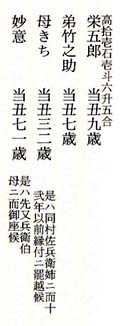 高拾壱石壱斗六升五合
栄五郎　当丑九歳
弟竹之助　当丑七歳
母きち　当丑三二歳
是ハ同村佐兵衛姉ニ而十
弐年以前縁付ニ罷越候
妙意　当丑七一歳
是ハ先又兵衛伯
母ニ而御座候